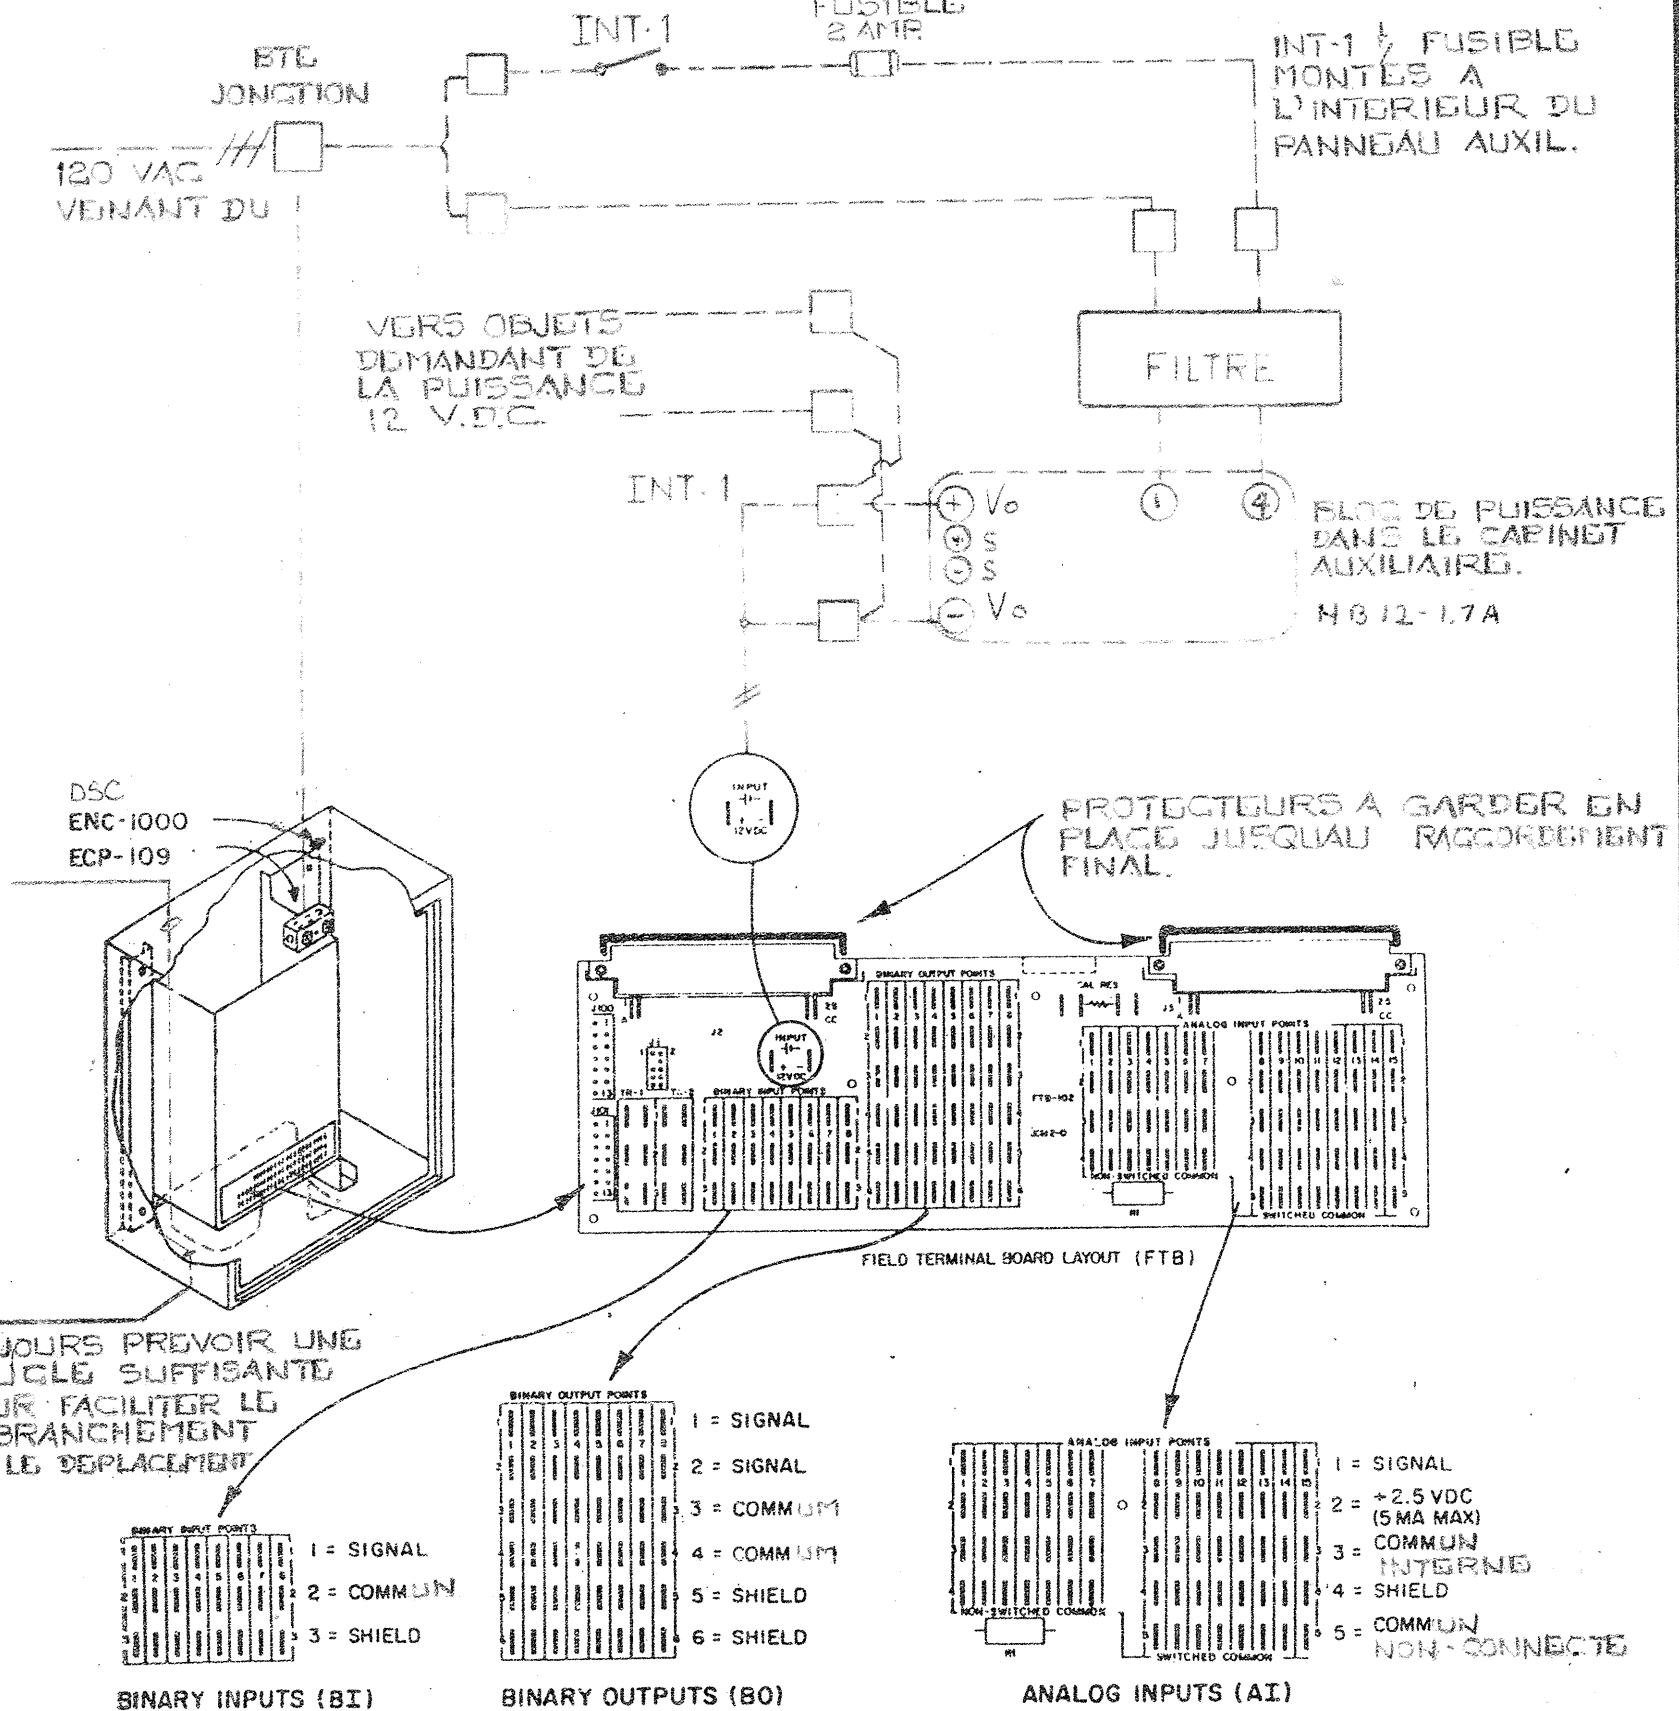 INT-1
FUSIBLE
2 AMP.
INT-1 & FUSIBLE
MONTES A
L'INTERIEUR DU
PANNEAU AUXIL.
BTE
JONCTION
120 VAC
VENANT DU
VERS OBJETS
DEMANDANT DE
LA PUISSANCE
12 V.D.C.
FILTRE
INT-1
+ Vo
+ S
- S
- Vo
1
4
BLOC DE PUISSANCE
DANS LE CABINET
AUXILIAIRE.
HB12-1.7A
DSC
ENC-1000
ECP-109
INPUT
+ -
12VDC
PROTECTEURS A GARDER EN
PLACE JUSQUAU RACCORDEMENT
FINAL.
BINARY OUTPUT POINTS
CAL RES
J100
A
25
CC
J2
J3
A
25
CC
ANALOG INPUT POINTS
INPUT
+ -
12VDC
J1
1 2
13
TB-1 TB-2
BINARY INPUT POINTS
J101
13
1 2 3 4 5 6 7 8
1 2 3 4 5 6 7 8
1 2 3 4 5 6 7
8 9 10 11 12 13 14 15
FTB-102
NON-SWITCHED COMMON
R1
SWITCHED COMMON
FIELD TERMINAL BOARD LAYOUT (FTB)
JOURS PREVOIR UNE
UCLE SUFFISANTE
UR FACILITER LE
BRANCHEMENT
LE DEPLACEMENT
BINARY INPUT POINTS
1 2 3 4 5 6 7 8
1 = SIGNAL
2 = COMMUN
3 = SHIELD
BINARY INPUTS (BI)
BINARY OUTPUT POINTS
1 2 3 4 5 6 7 8
1 = SIGNAL
2 = SIGNAL
3 = COMMUM
4 = COMMUM
5 = SHIELD
6 = SHIELD
BINARY OUTPUTS (BO)
ANALOG INPUT POINTS
1 2 3 4 5 6 7
8 9 10 11 12 13 14 15
NON-SWITCHED COMMON
R1
SWITCHED COMMON
1 = SIGNAL
2 = +2.5 VDC
(5 MA MAX)
3 = COMMUN
INTERNE
4 = SHIELD
5 = COMMUN
NON-CONNECTE
ANALOG INPUTS (AI)